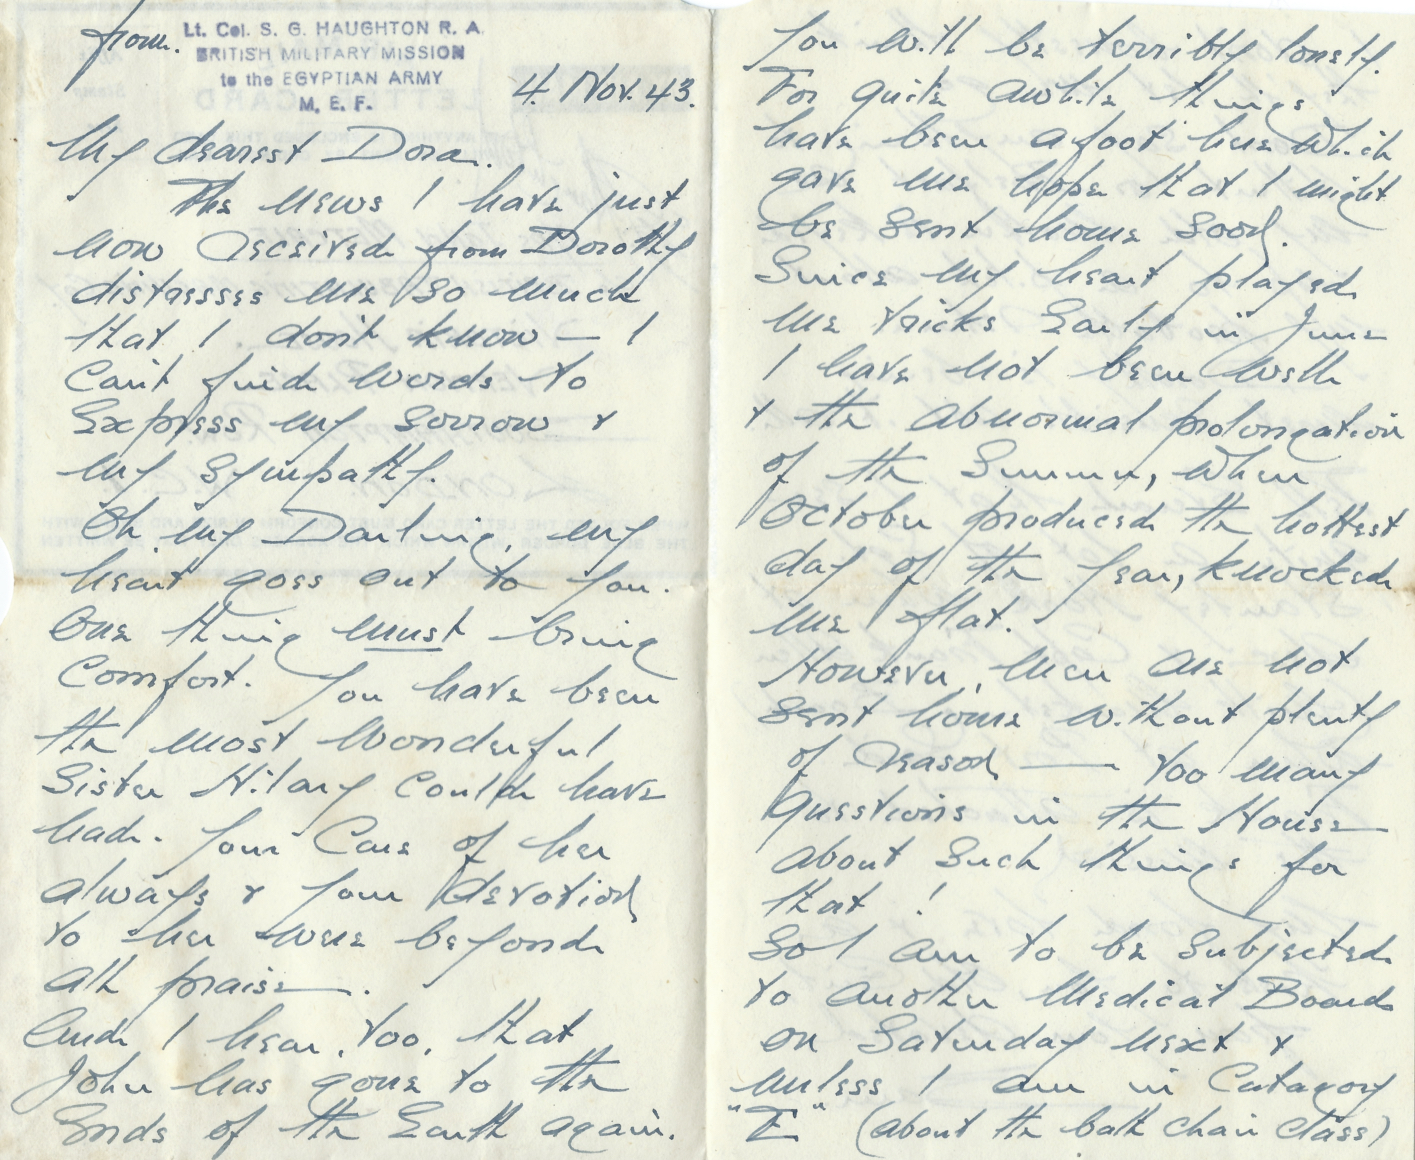 from.
Lt. Col. S. G. HAUGHTON R. A.
BRITISH MILITARY MISSION
to the EGYPTIAN ARMY
M. E. F.
4. Nov. 43.
My dearest Dora.
The news I have just
now received from Dorothy
distresses me so much
that I don't know — I
can't find words to
express my sorrow &
my sympathy.
Oh, my Darling, my
heart goes out to you.
One thing must bring
comfort. You have been
the most wonderful
sister Hilary could have
had. Your care of her
always & your devotion
to her were beyond
all praise.
And I hear, too, that
John has gone to the
ends of the Earth again.
You will be terribly lonely.
For quite awhile things
have been afoot here which
gave me hope that I might
be sent home soon.
Since my heart played
me tricks early in June
I have not been well
& the abnormal prolongation
of the Summer, when
October produced the hottest
day of the year, knocked
me flat.
However, men are not
sent home without plenty
of reason — too many
questions in the House
about such things for
that !
So I am to be subjected
to another Medical Board
on Saturday next &
unless I am in Catagory
"E" (about the bath chair class)